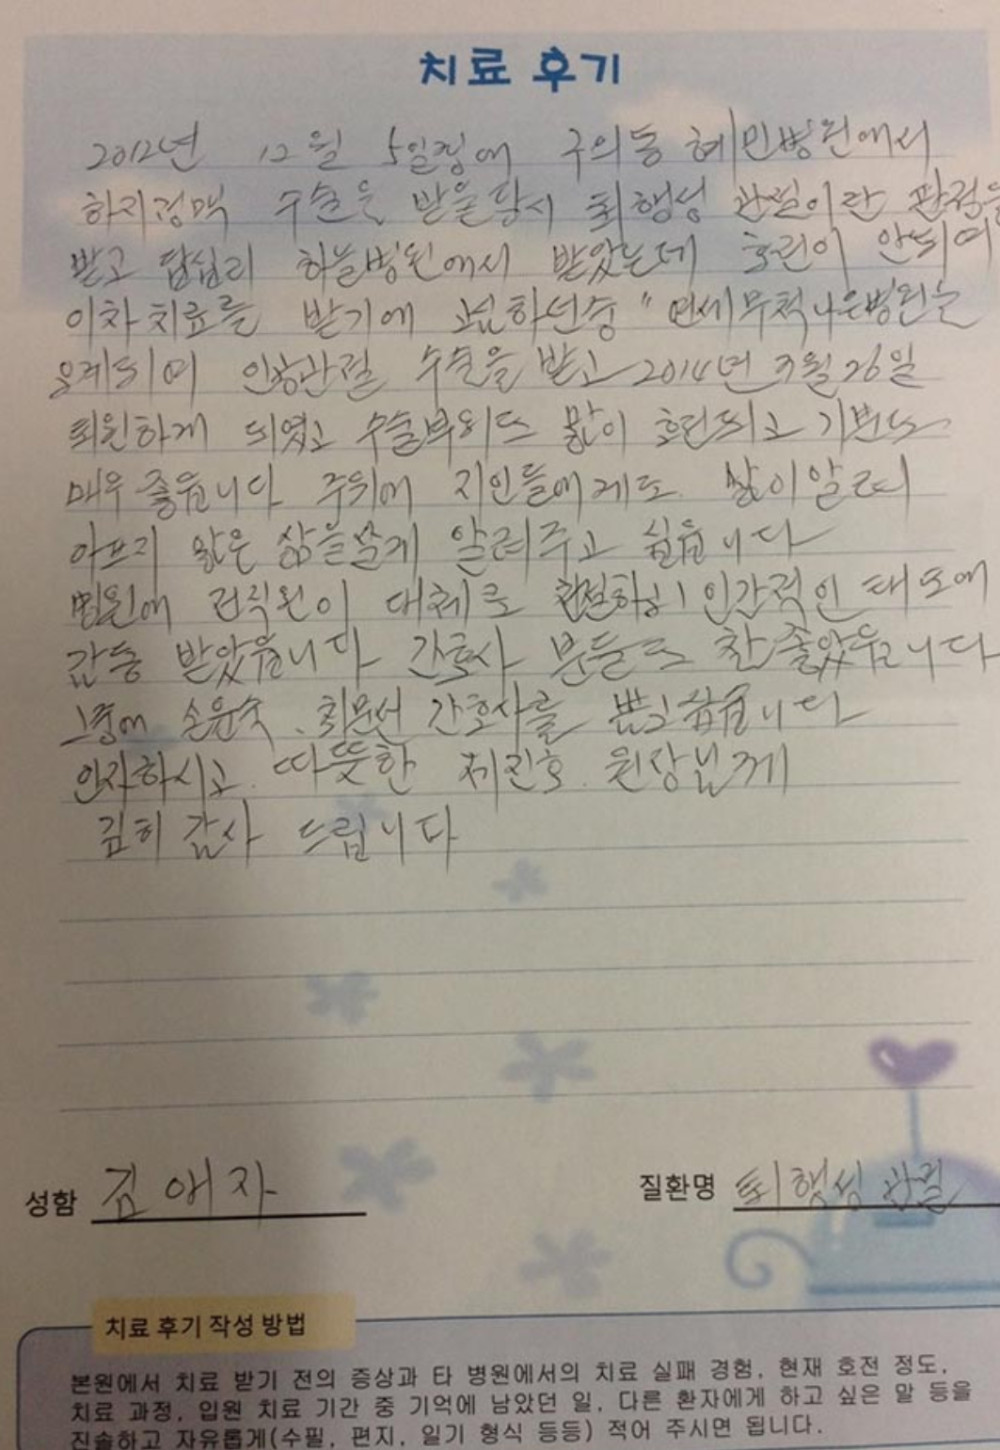 치료 후기
2012년 12월 5일경에 구의동 혜민병원에서
하지정맥 수술을 받을당시 퇴행성 관절이란 판정을
받고 답십리 하늘병원에서 받았는데 호린이 안되여
이차치료를 받기에 고심하던중 " 연세무척나은병원을
알게되며 인공관절 수술을 받고 2014년 3월 26일
퇴원하게 되였고 수술부위도 많이 호린되고 기분도
매우 좋읍니다 주위에 지인들에게도 많이알려
아프지 않은 삶을살게 알려주고 싶읍니다
병원에 전직원이 대체로 친절하니 인간적인 태도에
감동 받았읍니다 간호사 분들도 참 좋았읍니다
그중에 손윤숙. 최문선 간호사를 뽑고싶읍니다
인자하시고. 따뜻한 제진호. 원장님게
깊히 감사 드립니다
성함 김애자
질환명 퇴행성 관절
치료 후기 작성 방법
본원에서 치료 받기 전의 증상과 타 병원에서의 치료 실패 경험, 현재 호전 정도,
치료 과정, 입원 치료 기간 중 기억에 남았던 일, 다른 환자에게 하고 싶은 말 등을
진솔하고 자유롭게(수필, 편지, 일기 형식 등등) 적어 주시면 됩니다.